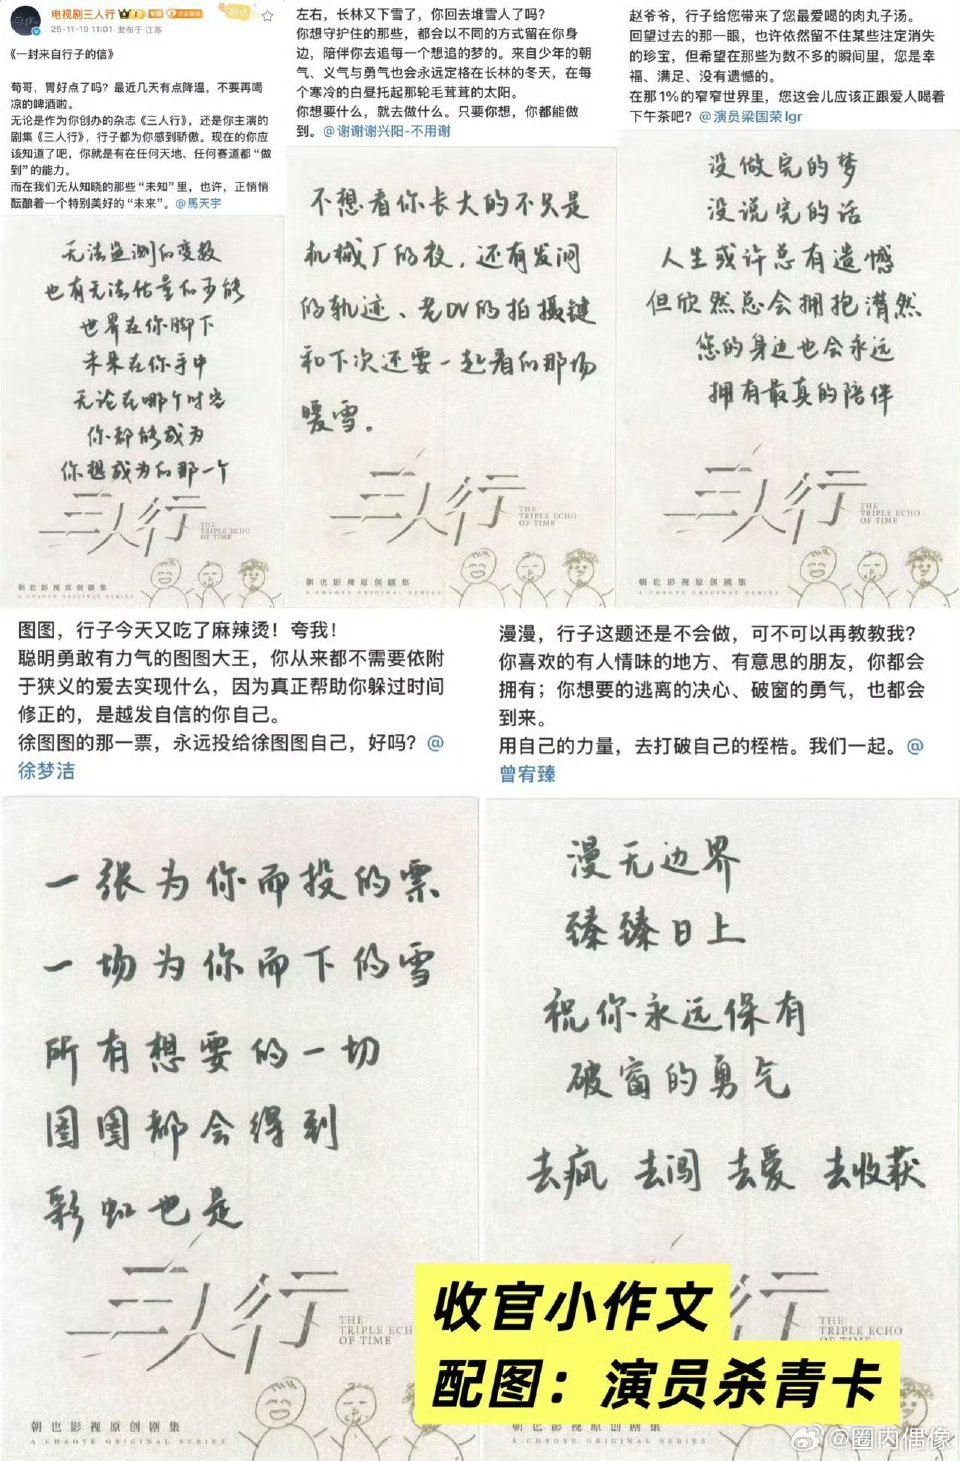 电视剧三人行
25-11-19 11:01 发布于 江苏
《一封来自行子的信》
荀哥，胃好点了吗？最近几天有点降温，不要再喝
凉的啤酒啦。
无论是作为你创办的杂志《三人行》，还是你主演的
剧集《三人行》，行子都为你感到骄傲。现在的你应
该知道了吧，你就是有在任何天地、任何赛道都“做
到”的能力。
而在我们无从知晓的那些“未知”里，也许，正悄悄
酝酿着一个特别美好的“未来”。@馬天宇
无法监测的变数
也有无法估量的可能
世界在你脚下
未来在你手中
无论在哪个时空
你都能成为
你想成为的那一个
三人行
THE
TRIPLE ECHO
OF TIME
朝也影视原创剧集
A CHAOYE ORIGINAL SERIES
左右，长林又下雪了，你回去堆雪人了吗？
你想守护住的那些，都会以不同的方式留在你身
边，陪伴你去追每一个想追的梦的。来自少年的朝
气、义气与勇气也会永远定格在长林的冬天，在每
个寒冷的白昼托起那轮毛茸茸的太阳。
你想要什么，就去做什么。只要你想，你都能做
到。@谢谢谢兴阳-不用谢
不想看你长大的不只是
机械厂的夜，还有发间
的轨迹、老DV的拍摄键
和下次还要一起看的那场
暖雪。
三人行
THE
TRIPLE ECHO
OF TIME
朝也影视原创剧集
A CHAOYE ORIGINAL SERIES
赵爷爷，行子给您带来了您最爱喝的肉丸子汤。
回望过去的那一眼，也许依然留不住某些注定消失
的珍宝，但希望在那些为数不多的瞬间里，您是幸
福、满足、没有遗憾的。
在那1%的窄窄世界里，您这会儿应该正跟爱人喝着
下午茶吧？@演员梁国荣lgr
没做完的梦
没说完的话
人生或许总有遗憾
但欣然总会拥抱潸然
您的身边也会永远
拥有最真的陪伴
三人行
THE
TRIPLE ECHO
OF TIME
朝也影视原创剧集
A CHAOYE ORIGINAL SERIES
图图，行子今天又吃了麻辣烫！夸我！
聪明勇敢有力气的图图大王，你从来都不需要依附
于狭义的爱去实现什么，因为真正帮助你躲过时间
修正的，是越发自信的你自己。
徐图图的那一票，永远投给徐图图自己，好吗？@
徐梦洁
一张为你而投的票
一场为你而下的雪
所有想要的一切
图图都会得到
彩虹也是
三人行
THE
TRIPLE ECHO
OF TIME
朝也影视原创剧集
A CHAOYE ORIGINAL SERIES
漫漫，行子这题还是不会做，可不可以再教教我？
你喜欢的有人情味的地方、有意思的朋友，你都会
拥有；你想要的逃离的决心、破窗的勇气，也都会
到来。
用自己的力量，去打破自己的桎梏。我们一起。@
曾宥臻
漫无边界
臻臻日上
祝你永远保有
破窗的勇气
去疯 去闯 去爱 去收获
THE
TRIPLE ECHO
朝也影视原创剧集
A CHAOYE ORIGINAL SERIES
收官小作文
配图：演员杀青卡
@圈内偶像